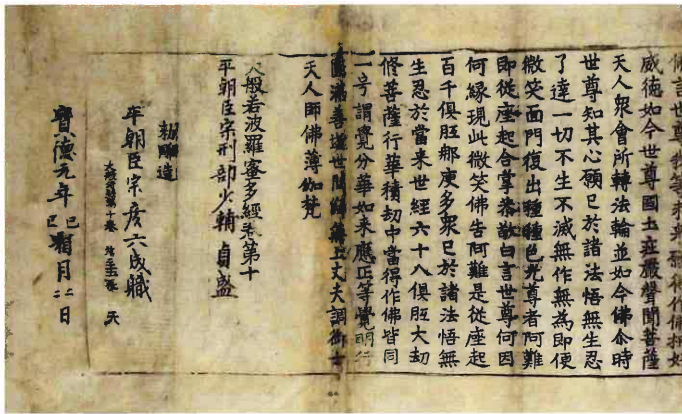 言世尊我等未來願得作佛相好
威德如今世尊國土莊嚴聲聞菩薩
天人衆會所轉法輪並如今佛尒時
世尊知其心願已於諸法悟無生忍
了達一切不生不滅無作無為即便
微笑面門復出種種色光尊者阿難
即從座起合掌恭敬白言世尊何因
何緣現此微笑佛告阿難是從座起
百千俱胝那庾多衆已於諸法悟無
生忍於當来世經六十八俱胝大劫
修菩薩行華積劫中當得作佛皆同
一号謂覺分華如来應正等覺明行
圓滿善逝世間解無上丈夫調御士
天人師佛薄伽梵
大般若波羅蜜多經卷第十
平朝臣宗刑部少輔貞盛
平朝臣宗彦六成職
寶德元年己巳霜月二二日